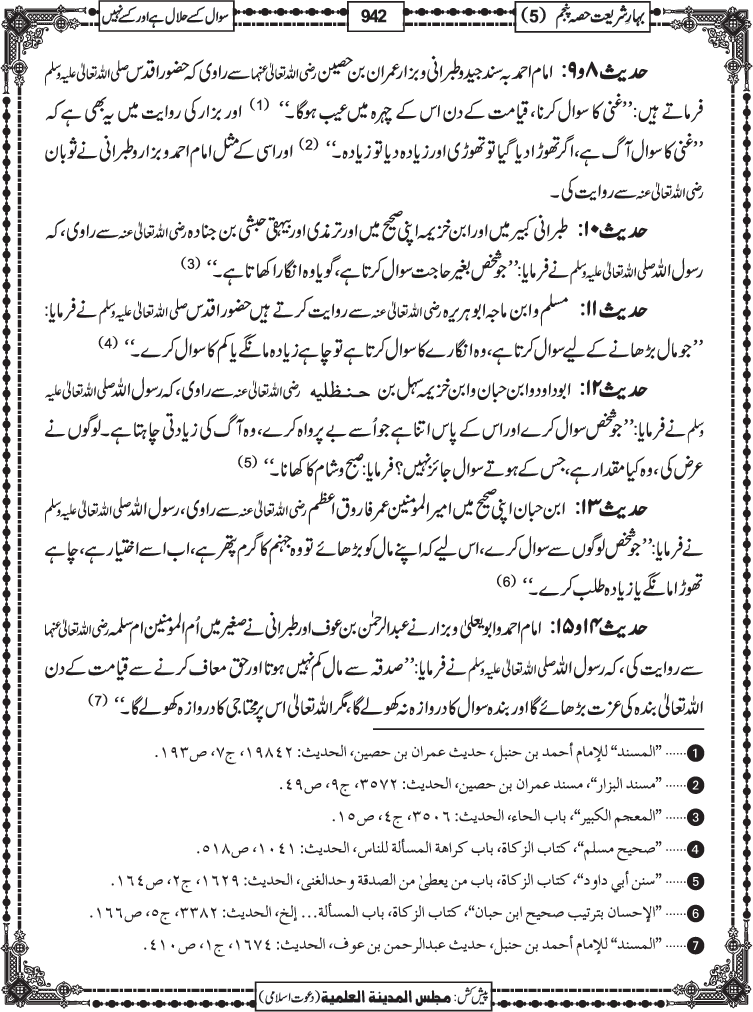 بہارِ شریعت حصہ پنجم (5)
942
سوال کسے حلال ہے اور کسے نہیں
حدیث ۸و۹: امام احمد بہ سند جید و طبرانی و بزار عمران بن حصین رضی اللہ تعالیٰ عنہما سے راوی کہ حضور اقدس صلی اللہ تعالیٰ علیہ وسلم
فرماتے ہیں: ’’غنی کا سوال کرنا، قیامت کے دن اس کے چہرہ میں عیب ہوگا۔‘‘ (1) اور بزار کی روایت میں یہ بھی ہے کہ
’’غنی کا سوال آگ ہے، اگر تھوڑا دیا گیا تو تھوڑی اور زیادہ دیا تو زیادہ۔‘‘ (2) اور اسی کے مثل امام احمد و بزار و طبرانی نے ثوبان
رضی اللہ تعالیٰ عنہ سے روایت کی۔
حدیث ۱۰: طبرانی کبیر میں اور ابن خزیمہ اپنی صحیح میں اور ترمذی اور بیہقی حبشی بن جنادہ رضی اللہ تعالیٰ عنہ سے راوی، کہ
رسول اللہ صلی اللہ تعالیٰ علیہ وسلم نے فرمایا: ’’جو شخص بغیر حاجت سوال کرتا ہے، گویا وہ انگارا کھاتا ہے۔‘‘ (3)
حدیث ۱۱: مسلم و ابن ماجہ ابوہریرہ رضی اللہ تعالیٰ عنہ سے روایت کرتے ہیں حضور اقدس صلی اللہ تعالیٰ علیہ وسلم نے فرمایا:
’’جو مال بڑھانے کے لیے سوال کرتا ہے، وہ انگارے کا سوال کرتا ہے تو چاہے زیادہ مانگے یا کم کا سوال کرے۔‘‘ (4)
حدیث ۱۲: ابو داود و ابن حبان و ابن خزیمہ سہل بن حنظلیہ رضی اللہ تعالیٰ عنہ سے راوی، کہ رسول اللہ صلی اللہ تعالیٰ علیہ
وسلم نے فرمایا: ’’جو شخص سوال کرے اور اس کے پاس اتنا ہے جو اُسے بے پرواہ کرے، وہ آگ کی زیادتی چاہتا ہے۔ لوگوں نے
عرض کی، وہ کیا مقدار ہے، جس کے ہوتے سوال جائز نہیں؟ فرمایا: صبح و شام کا کھانا۔‘‘ (5)
حدیث ۱۳: ابن حبان اپنی صحیح میں امیر المومنین عمر فاروق اعظم رضی اللہ تعالیٰ عنہ سے راوی، رسول اللہ صلی اللہ تعالیٰ علیہ وسلم
نے فرمایا: ’’جو شخص لوگوں سے سوال کرے، اس لیے کہ اپنے مال کو بڑھائے تو وہ جہنم کا گرم پتھر ہے، اب اسے اختیار ہے، چاہے
تھوڑا مانگے یا زیادہ طلب کرے۔‘‘ (6)
حدیث ۱۴و۱۵: امام احمد و ابو یعلیٰ و بزار نے عبدالرحمٰن بن عوف اور طبرانی نے صغیر میں اُم المومنین ام سلمہ رضی اللہ تعالیٰ عنہما
سے روایت کی، کہ رسول اللہ صلی اللہ تعالیٰ علیہ وسلم نے فرمایا: ’’صدقہ سے مال کم نہیں ہوتا اور حق معاف کرنے سے قیامت کے دن
اللہ تعالیٰ بندہ کی عزت بڑھائے گا اور بندہ سوال کا دروازہ نہ کھولے گا، مگر اللہ تعالیٰ اس پر محتاجی کا دروازہ کھولے گا۔‘‘ (7)
1 ...... ”المسند“ للإمام أحمد بن حنبل، حديث عمران بن حصين، الحديث: ١٩٨٤٢، ج٧، ص١٩٣.
2 ...... ”مسند البزار“، مسند عمران بن حصين، الحديث: ٣٥٧٢، ج٩، ص٤٩.
3 ...... ”المعجم الكبير“، باب الحاء، الحديث: ٣٥٠٦، ج٤، ص١٥.
4 ...... ”صحيح مسلم“، كتاب الزكاة، باب كراهة المسألة للناس، الحديث: ١٠٤١، ص٥١٨.
5 ...... ”سنن أبي داود“، كتاب الزكاة، باب من يعطىٰ من الصدقة وحدالغنى، الحديث: ١٦٢٩، ج٢، ص١٦٤.
6 ...... ”الإحسان بترتيب صحيح ابن حبان“، كتاب الزكاة، باب المسألة... إلخ، الحديث: ٣٣٨٢، ج٥، ص١٦٦.
7 ...... ”المسند“ للإمام أحمد بن حنبل، حديث عبدالرحمن بن عوف، الحديث: ١٦٧٤، ج١، ص٤١٠.
پیش کش: مجلس المدینۃ العلمیۃ (دعوتِ اسلامی)